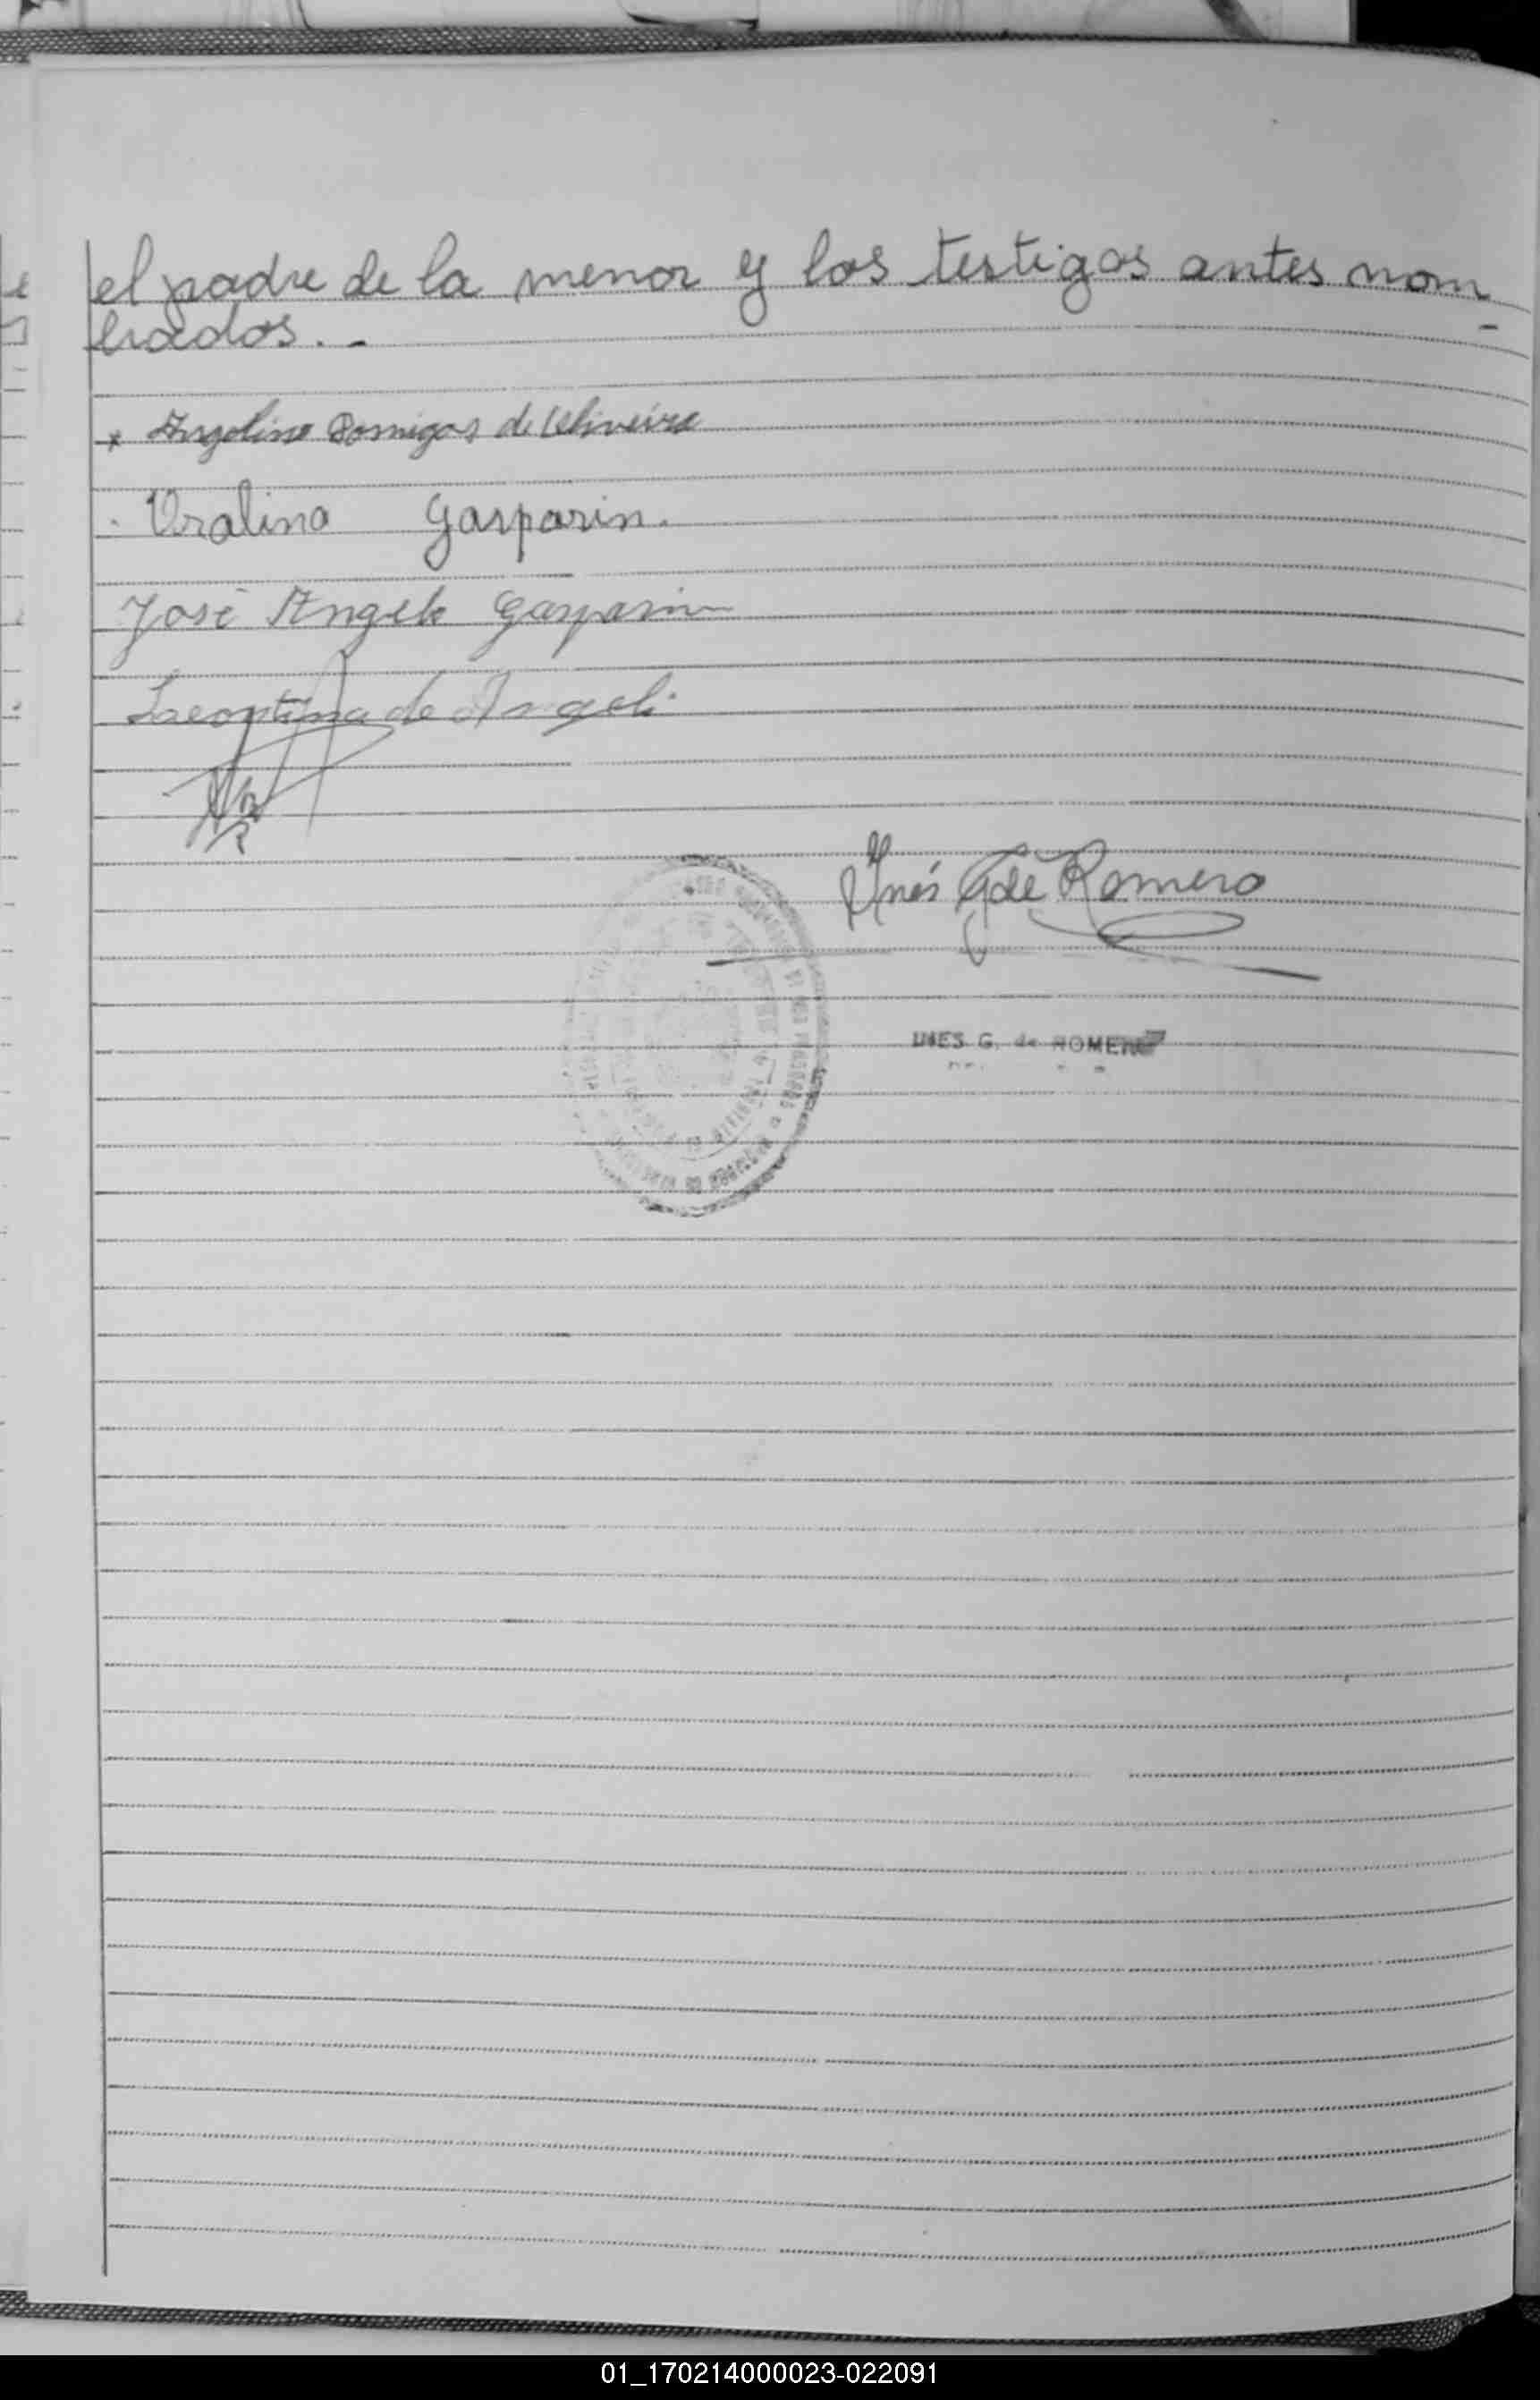 el padre de la menor y los testigos antes nom-
brados.-
x Angelino Domigos de Oliveira
Gasparin.
José Angelo Gasparin
de Angeli
Inés G de Romero
INES G. de ROMERO
01_170214000023-022091